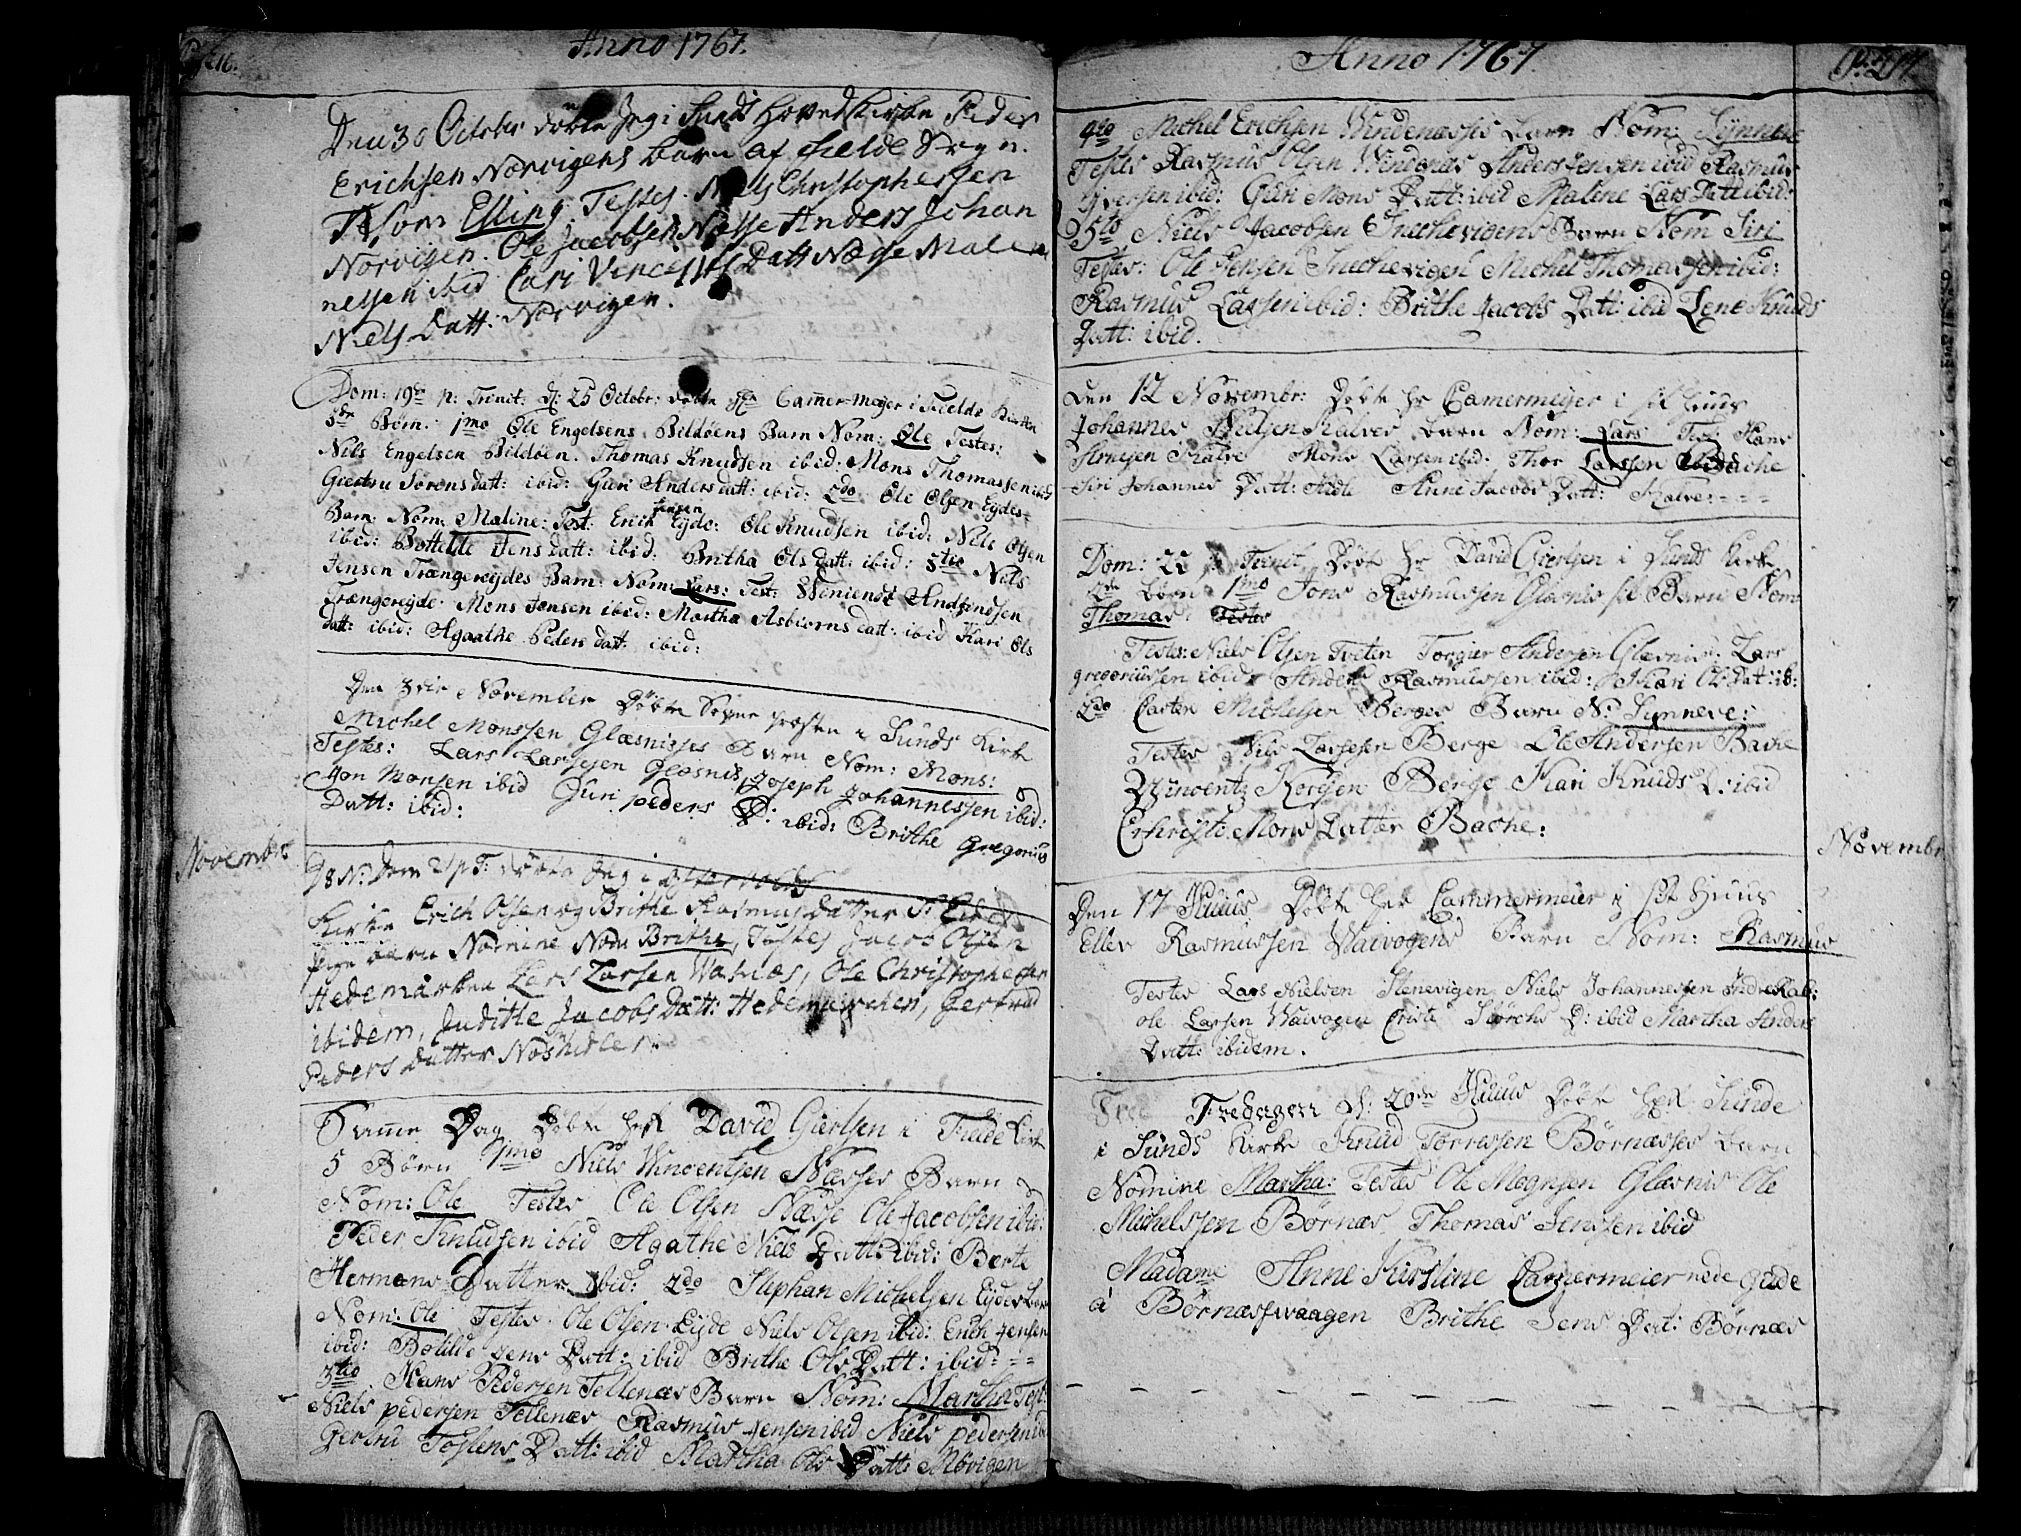 Anno 1767.
Den 30 Octobr døbte Jeg i Sunds Hoved Kirke Peder
Erichsen Norvigens barn af Fielde Sogn.
Nom Elling. Testes. Niels Christophersen
Norvigen. Ole Jacobsen Næsse Anders Johan
nessen ibid Cari Vincents Datt Næsse Malene
Niels Datt: Norvigen.
Dom: 19de p: Trinit: d: 25 Octobr: døbte Hr Camermeyer i Fielde Kirke
3de Børn. 1mo Ole Engelsens Bildøens Barn Nom: Ole Testes:
Nils Engelsen Bildøen. Thomas Knudsen ibid: Mons Thomassen ibid
Giertru Sørens datt: ibid: Guri Anders datt: ibid: 2do Ole Olsen Eydes
Barn: Nom: Maline: Test: Erik Jensen Eyde: Ole Knudsen ibid: Nils Olsen
ibid: Bottelde Jens datt: ibid: Britha Ols datt: ibid: 3tio Nils
Jensen Trængereydes Barn: Nom: Lars: Test: Winiendt
Trængereyde. Mons Jensen ibid: Martha Asbiorns datt: ibid Kari Ols
datt: ibid: Agaathe Peders datt: ibid:
Den November Døbte Sogne Præsten i Sunds Kirke
Michel Monssen Glæsnisses Barn Nom: Mons:
Testes: Lars Larssen Glæsnis, Joseph Johannessen ibid:
Jon Monsen ibid Guri peders D: ibid: Brithe Gregorius
Datt: ibid:
Novembr
D 8 N: Dom 21 p T: døbte Jeg i
Kirke Erich Olsen og Brithe Rasmus datter
pige barn Nomine Nom Brithe, Testes Jacob Olsen
Hedemarken Lars Larsen Ole Christophersen
ibidem, Juditte Jacobs Datt: Hedemarchen, Gertrud
Peders datter
Samme Dag Døbte Her David Giertsen i Fielde Kirke
5 Børn 1mo Niels Vincentsen Næsses Barn
Nom: Ole Testes Ole Olsen Næsse Ole Jacobsen ibid:
Peder Knudsen ibid Agathe Niels Datt: ibid: Berte
Hermans Datter ibid: 2do Stephan Michelsen Eydes barn
Nom: Ole Testes Ole Olsen Eyde Niels Olsen ibid: Erich Jensen
ibid: Botilde Jens Datt: ibid Brithe Ols Datt: ibid:
3tio Hans Pedersen Tellenæs Barn Nom: Martha Test:
Niels pedersen Tellenæs Rasmus Jensen ibid Niels pedersen ibid
Gertrud Tostens Datt: ibid Martha Ols Datt: Møvigen
Anno 1767.
4to Michel Erichsen Windenæsses barn Nom: Synneve
Testes Rasmus Olsen Windenæs Anders Jensen ibid Rasmus
Iversen ibid: Guri Mons Datt: ibid Maline Lars Datt ibid:
5to Niels Jacobsen Snechevigens Barn Nom Siri
Testes: Ole Jensen Snechevigen Michel Thomassen ibid:
Rasmus Larssen ibid: Brithe Jacobs Datt: ibid Lene Knuds
Datt: ibid.
Den 12 Novembr: Døbte Hr Camermeyer i sit Huus
Johannes Nielsen Kalves barn Nom: Lars Test: Hans
Arnesen Kalve Mons Larsen ibid: Thor Larssen
Siri Johannes Datt: Anne Jacobs Datt: Kalve:
Dom: 22 p Trinit Døbte Hr David Giertsen i Sunds Kirke
2de Børn 1mo Jons Rasmussen Glæsnis sit Barn Nom
Thomas: Testes
Testes: Niels Olsen Tveten Torgier Andersen Glæsnis: Lars
gregoriussen ibid: Anders Rasmussen ibid: Kari Ols Datt: ib:
2do Carten Michelsen Berges Barn N: Synneve:
Testes Nils Larssen Berge Ole Andersen Bache
Winoentz Berge Kari Knuds D: ibid
Christi Mons Datter Bache:
Novembr
Den 17 Huus Døbte Her Cammermeier i sit Huus
Ellev Rasmussen Waivogens Barn Nom: Rasmus
Testes Lars Nielsen Stenevigen Niels Johannessen
ole Larsen Waivogen Cristi D: ibid Martha Anders
Datt: ibidem.
Fredagen d: 20de Huus Døbte Her Sunde
i Sunds Kirke Knud Torressen Børnæsses barn
Nomine Martha: Testes Ole Mognsen Glæsnis Ole
Michelssen Børnæs Thomas Jenssen ibid
Madame Anne Kirstine Camermeier
á Børnæsvaagen Brithe Jens Dat: Børnæs